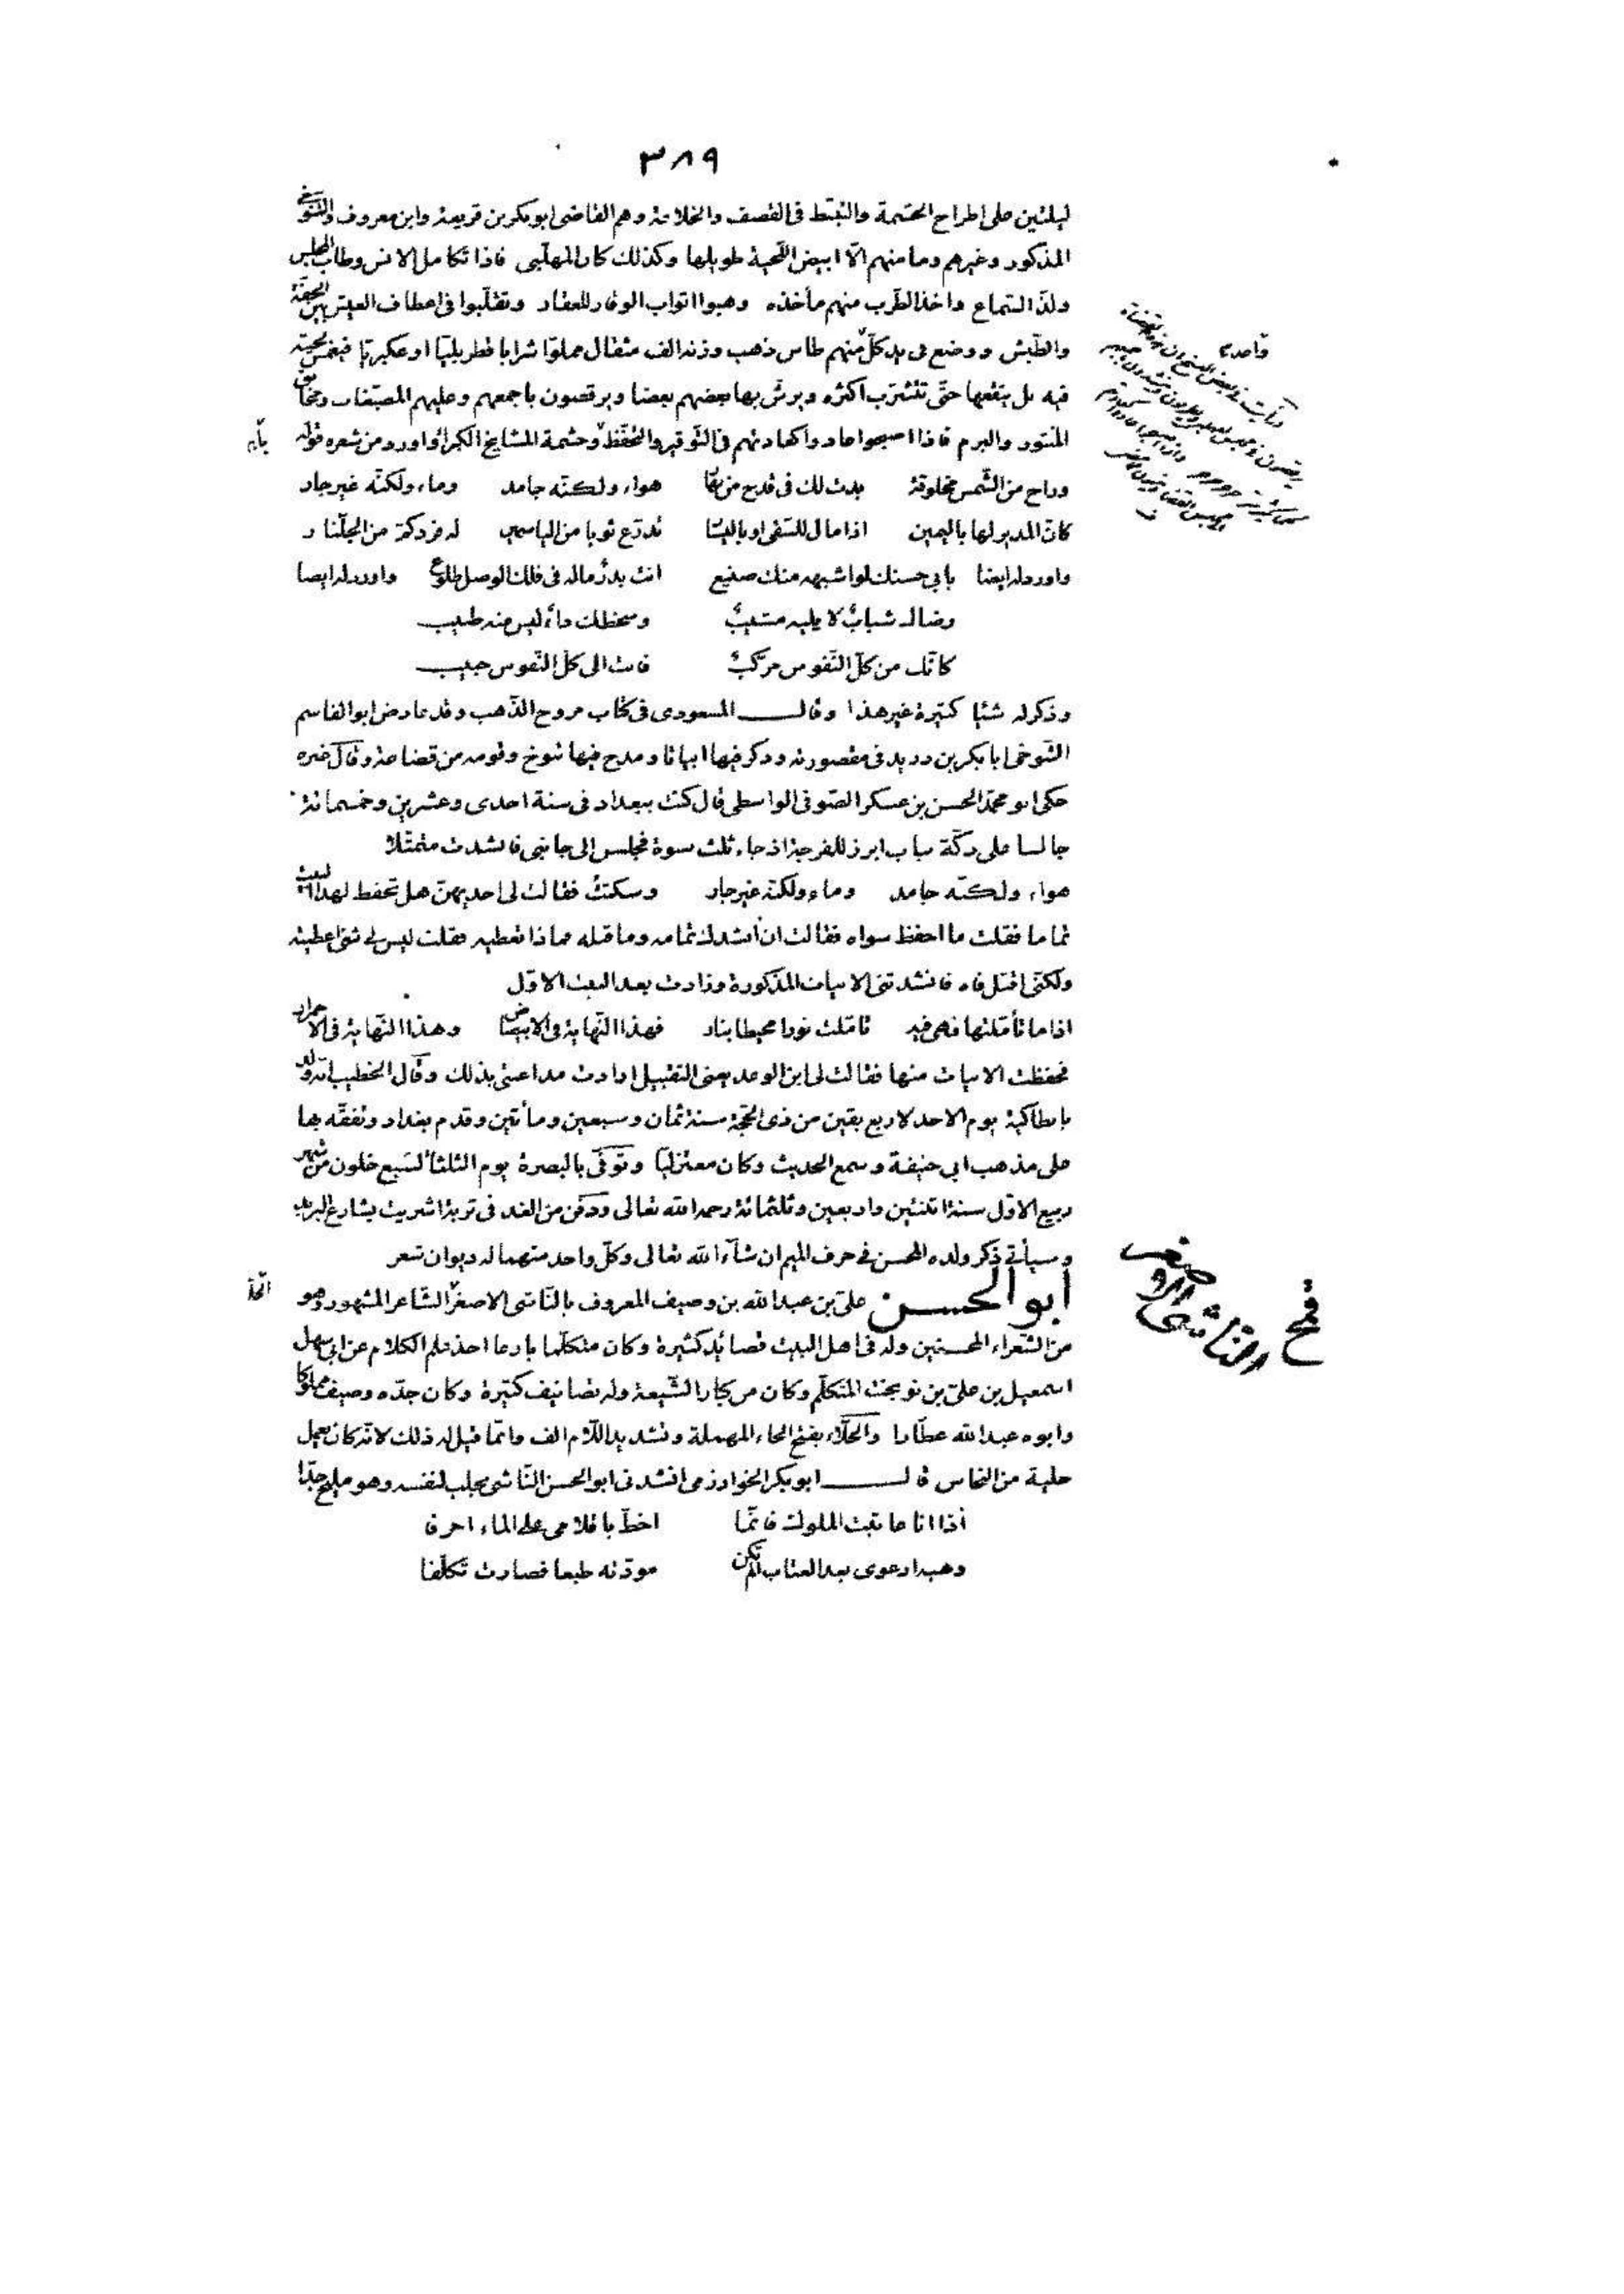 ٣٨٩
ليلتين على اطراح الحشمة والتبسّط فى القصف والخلاعة وهم القاضى ابو بكر بن قريعة وابن معروف والتنوخى
المذكور وغيرهم وما منهم الّا ابيض اللّحية طويلها وكذلك كان المهلّبى فاذا تكامل الانس وطاب المجلس
ولذّ السّماع واخذ الطّرب منهم مأخذه وهبوا اثواب الوقار للعقار وتقلّبوا فى اعطاف العيش بين الخفّة
والطّيش ووضع فى يد كلّ منهم طاس ذهب وزنه الف مثقال مملوّا شرابا قطربليّا او عكبريّا فيغمس لحيته
فيه بل ينقعها حتّى تتشرّب اكثره ويرشّ بها بعضهم بعضا ويرقصون باجمعهم وعليهم المصبّغات ومخانق
المنثور والبرم فاذا اصبحوا عادوا كعادتهم فى التّوقير والتّحفّظ وحشمة المشايخ الكبراء واورد من شعره قوله
وراح من الشّمس مخلوقة بدت لك فى قدح من نهار هواء ولكنّه جامد وماء ولكنّه غير جار
كانّ المدير لها باليمين اذا مال للسّقى او باليسار تدرّع ثوبا من الياسمين له فرد كمّ من الجلّنار
واورد له ايضا بابى حسنك لو اشبهه منك صنيع انت بدر ماله فى فلك الوصل طلوع واورد له ايضا
رضاك شبابٌ لا يليه مشيبٌ وسخطك داءٌ ليس منه طبيب
كانّك من كلّ النّفوس مركّبٌ فانت الى كلّ النّفوس حبيب
وذكر له شيئا كثيرة غير هذا وقال المسعودى فى كتاب مروج الذّهب وقد عارض ابو القاسم
التّنوخى ابا بكر بن دريد فى مقصورته وذكر فيها ابياتا ومدح فيها تنوخ وقومه من قضاعة وقال غيره
حكى ابو محمّد الحسن بن عسكر الصّوفى الواسطى قال كنت ببغداد فى سنة احدى وعشرين وخمسمائة
جالسا على دكّة بباب ابرز للفرجة اذ جاء ثلث نسوة فجلسن الى جانبى فانشدت متمثّلا
هواء ولكنّه جامد وماء ولكنّه غير جار وسكتّ فقالت لى احديهنّ هل تحفظ لهذا البيت
تماما فقلت ما احفظ سواه فقالت ان انشدك تمامه وما قبله ماذا تعطيه فقلت ليس لى شئ اعطيه
ولكنّى اقبّل فاه فانشدتنى الابيات المذكورة وزادت بعد البيت الاوّل
اذا ما تأمّلتها فهى فيه تامّلت نورا محيطا بنار فهذا النّهاية فى الابيضاض وهذا النّهاية فى الاحمرار
فحفظت الابيات منها فقالت لى اين الوعد يعنى التقبيل ارادت مداعبتى بذلك وقال الخطيب انّه ولد
بانطاكية يوم الاحد لاربع بقين من ذى الحجّة سنة ثمان وسبعين ومأتين وقدم بغداد وتفقّه بها
على مذهب ابى حنيفة وسمع الحديث وكان معتزليّا وتوفّى بالبصرة يوم الثلثا لسبع خلون من شهر
ربيع الاوّل سنة اثنتين واربعين وثلثمائة رحمه الله تعالى ودفن من الغد فى تربة اشريت بشارع المربد
وسيأتى ذكر ولده المحسن فى حرف الميم ان شآء الله تعالى وكلّ واحد منهما له ديوان شعر
أبو الحسن علىّ بن عبد الله بن وصيف المعروف بالنّاشى الاصغر الشّاعر المشهور وهو
من الشّعراء المحسنين وله فى اهل البيت قصائد كثيرة وكان متكلّما بارعا اخذ علم الكلام عن ابى سهل
اسمعيل بن علىّ بن نوبخت المتكلّم وكان من كبار الشّيعة وله تصانيف كثيرة وكان جدّه وصيف مملوكا
وابوه عبد الله عطّارا والحلّاء بفتح الحاء المهملة وتشديد اللّام الف وانّما قيل له ذلك لانّه كان يعمل
حلية من النحاس قال ابو بكر الخوارزمى انشدنى ابو الحسن النّاشى بحلب لنفسه وهو مليح جدّا
أذا انا عاتبت الملوك فانّما اخطّ باقلامى على الماء احرفا
وهبه ارعوى بعد العتاب الم تكن مودّته طبعا فصارت تكلّفا
الناشى الاصغر